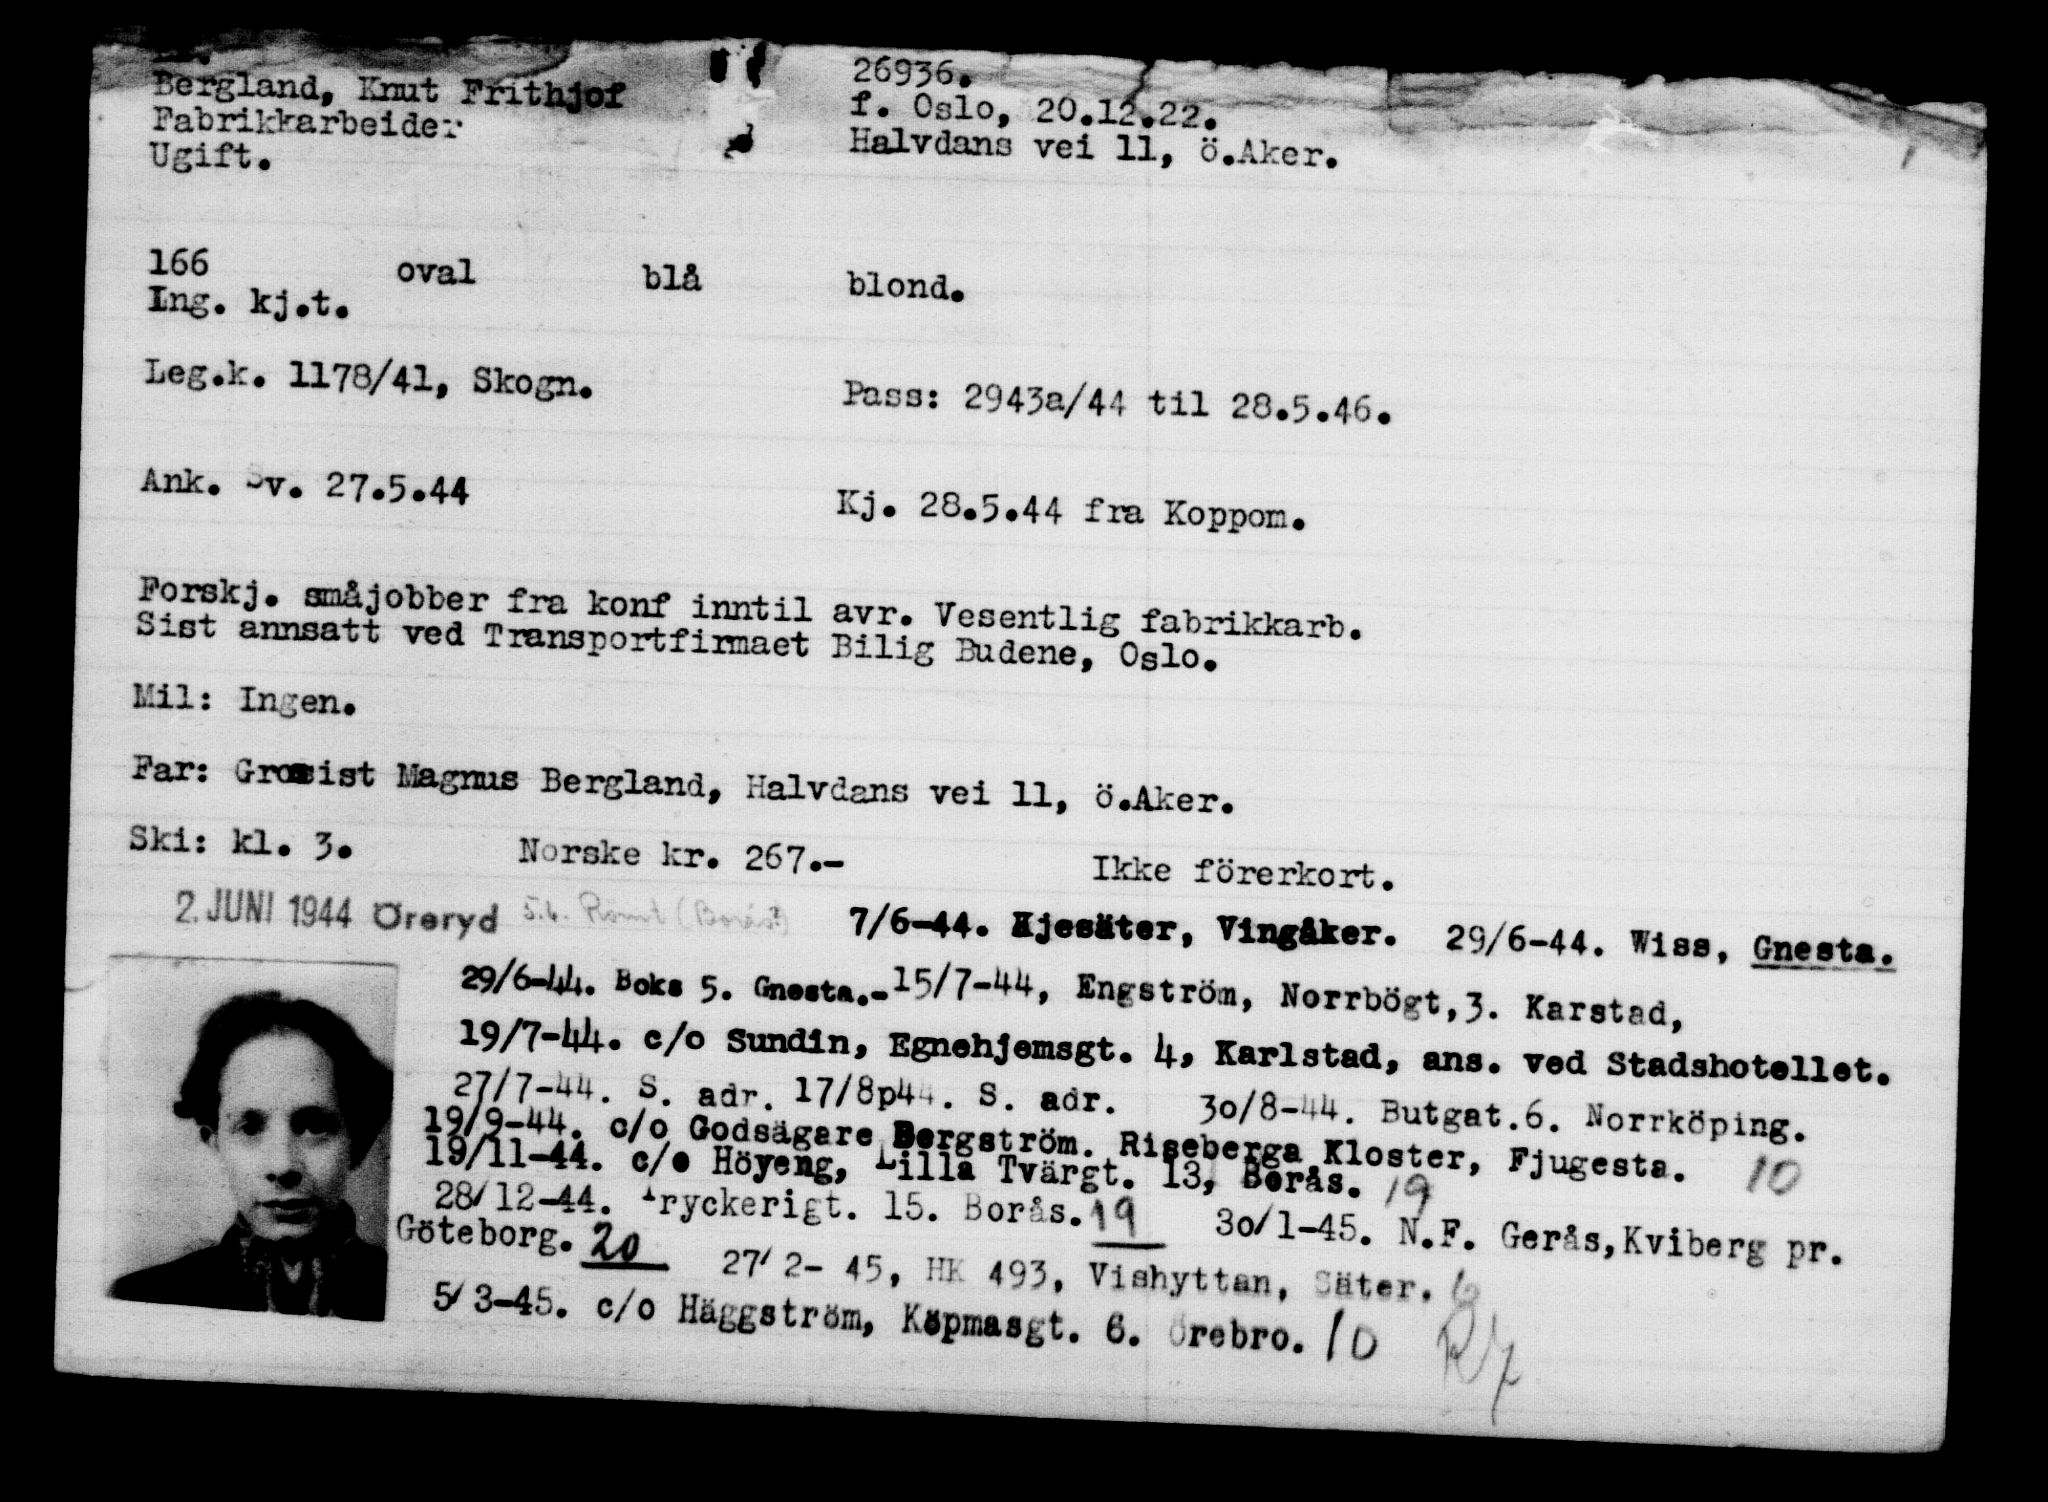 Bergland, Knut Frithjof 26936.
Fabrikkarbeider f. Oslo, 20.12.22.
Ugift. Halvdans vei 11, ö.Aker.
166 oval blå blond.
Ing. kj.t.
Leg.k. 1178/41, Skogn. Pass: 2943a/44 til 28.5.46.
Ank. Sv. 27.5.44 Kj. 28.5.44 fra Koppom.
Forskj. småjobber fra konf inntil avr. Vesentlig fabrikkarb.
Sist annsatt ved Transportfirmaet Bilig Budene, Oslo.
Mil: Ingen.
Far: Grossist Magnus Bergland, Halvdans vei 11, ö.Aker.
Ski: kl. 3. Norske kr. 267.- Ikke förerkort.
2. JUNI 1944 Öreryd 5.6. (Borås?) 7/6-44. Kjesäter, Vingåker. 29/6-44. Wiss, Gnesta.
29/6-44. Boks 5. Gnesta.-15/7-44, Engström, Norrbögt,3. Karstad,
19/7-44. c/o Sundin, Egnehjemsgt. 4, Karlstad, ans. ved Stadshotellet.
27/7-44. S. adr. 17/8p44. S. adr. 30/8-44. Butgat.6. Norrköping.
19/9-44. c/o Godsägare Bergström. Riseberga Kloster, Fjugesta. 10
19/11-44. c/o Höyeng, Lilla Tvärgt. 13, Borås. 19
28/12-44. Tryckerigt. 15. Borås. 19 30/1-45. N.F. Gerås,Kviberg pr.
Göteborg. 20 27/2- 45, HK 493, Vishyttan, Säter. 6
5/3-45. c/o Häggström, Köpmasgt. 6. Örebro. 10